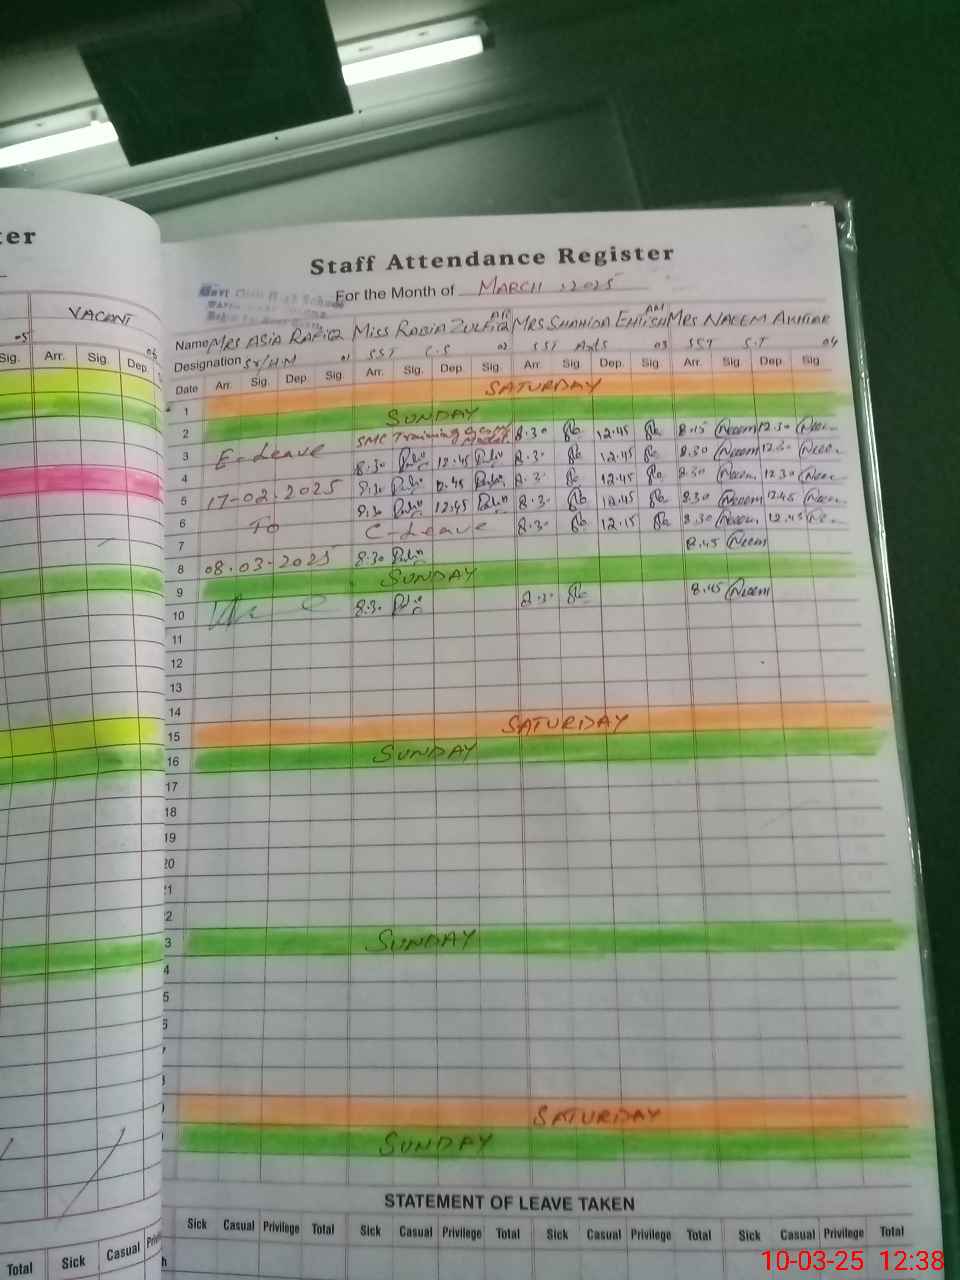 ter
Staff Attendance Register
Govt Girls High School
For the Month of MARCH, 2025
VACANT
Name Mrs ASIA RAFIQ Miss RABIA ZULFIQAR Mrs SHAHIDA EHTISHAM Mrs NAEEM AKHTAR
Designation SST/HM 01 SST C.S 02 SST Arts 03 SST S.T 04
05
Sig. Arr. Sig. Dep. 06
Date Arr. Sig. Dep. Sig. Arr. Sig. Dep. Sig. Arr. Sig. Dep. Sig. Arr. Sig. Dep. Sig
1 SATURDAY
2 SUNDAY
3 E-Leave SMC Training 8.30 12.45 8.15 Naeem 12.30 Naeem
4 8.30 12.45 8.30 12.45 8.30 Naeem 12.30
5 17-02-2025 8.30 12.45 8.30 12.45 8.30 Naeem 12.30
6 To 8.30 12.45 8.30 12.45 8.30 Naeem 12.45
7 C-Leave 8.30 12.15 8.30 Naeem 12.45
8 08.03-2025 8.30 8.45 Naeem
9 SUNDAY
10 8.30 8.30 8.45 Naeem
11
12
13
14
15 SATURDAY
16 SUNDAY
17
18
19
20
1
2
3 SUNDAY
4
5
SATURDAY
SUNDAY
STATEMENT OF LEAVE TAKEN
Sick Casual Privilege Total Sick Casual Privilege Total Sick Casual Privilege Total Sick Casual Privilege Total
Total Sick Casual
10-03-25 12:38